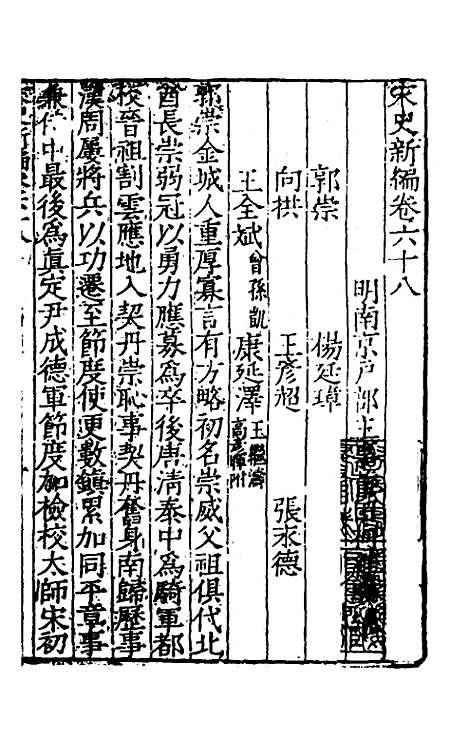 宋史新編卷六十八
明南京戶部主
郭崇 楊廷璋
向拱 王彥超 張永德
王全斌曾孫凱 康延澤王繼濤高彥暉附
郭崇金城人重厚寡言有方略初名崇威父祖俱代北
酋長崇弱冠以勇力應募為卒後唐清泰中為騎軍都
校晉祖割雲應地入契丹崇恥事契丹奮身南歸歷事
漢周屢將兵以功遷至節度使更數鎮累加同平章事
兼侍中最後為真定尹成德軍節度加檢校太師宋初